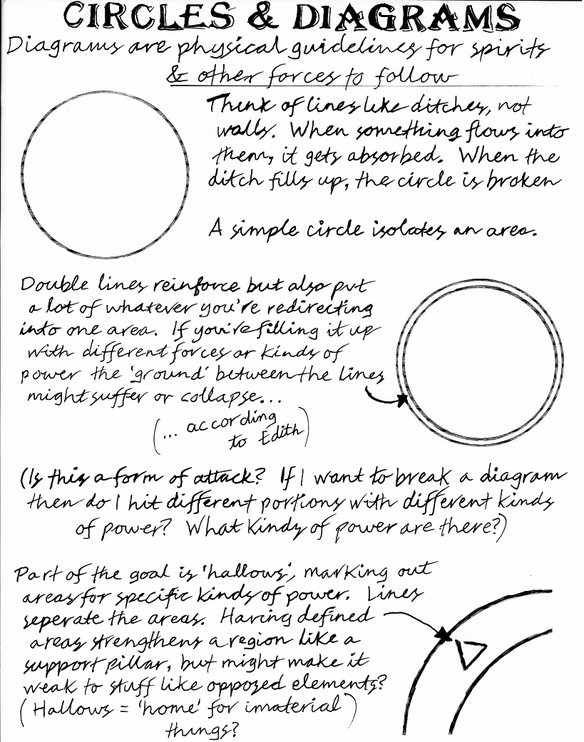 CIRCLES & DIAGRAMS
Diagrams are physical guidelines for spirits
& other forces to follow
Think of lines like ditches, not
walls. When something flows into
them, it gets absorbed. When the
ditch fills up, the circle is broken
A simple circle isolates an area.
Double lines reinforce but also put
a lot of whatever you're redirecting
into one area. If you're filling it up
with different forces or kinds of
power the 'ground' between the lines
might suffer or collapse...
(... according
to Edith)
(Is this a form of attack? If I want to break a diagram
then do I hit different portions with different kinds
of power? What kinds of power are there?)
Part of the goal is 'hallows', marking out
areas for specific kinds of power. Lines
seperate the areas. Having defined
areas strengthens a region like a
support pillar, but might make it
weak to stuff like opposed elements?
(Hallows = 'home' for imaterial
things?)